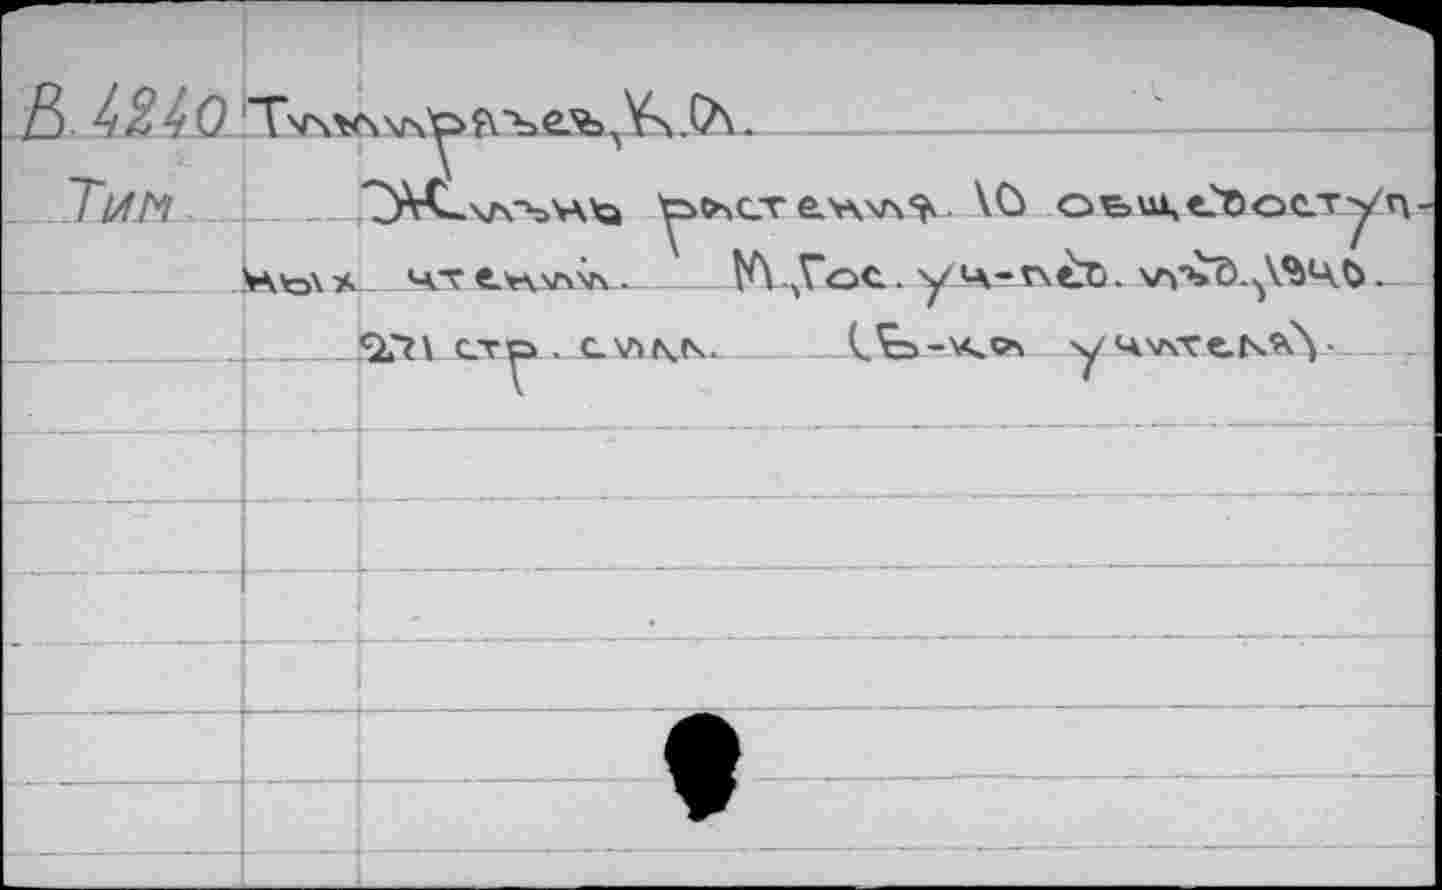 В.4240 Тимирязев, К.А.
Тим Жизнь растения. 10 общедоступ-
ных чтений. М., Гос. уч-пед. изд., 1940.
271 стр. с илл. (Б-ка учителя).